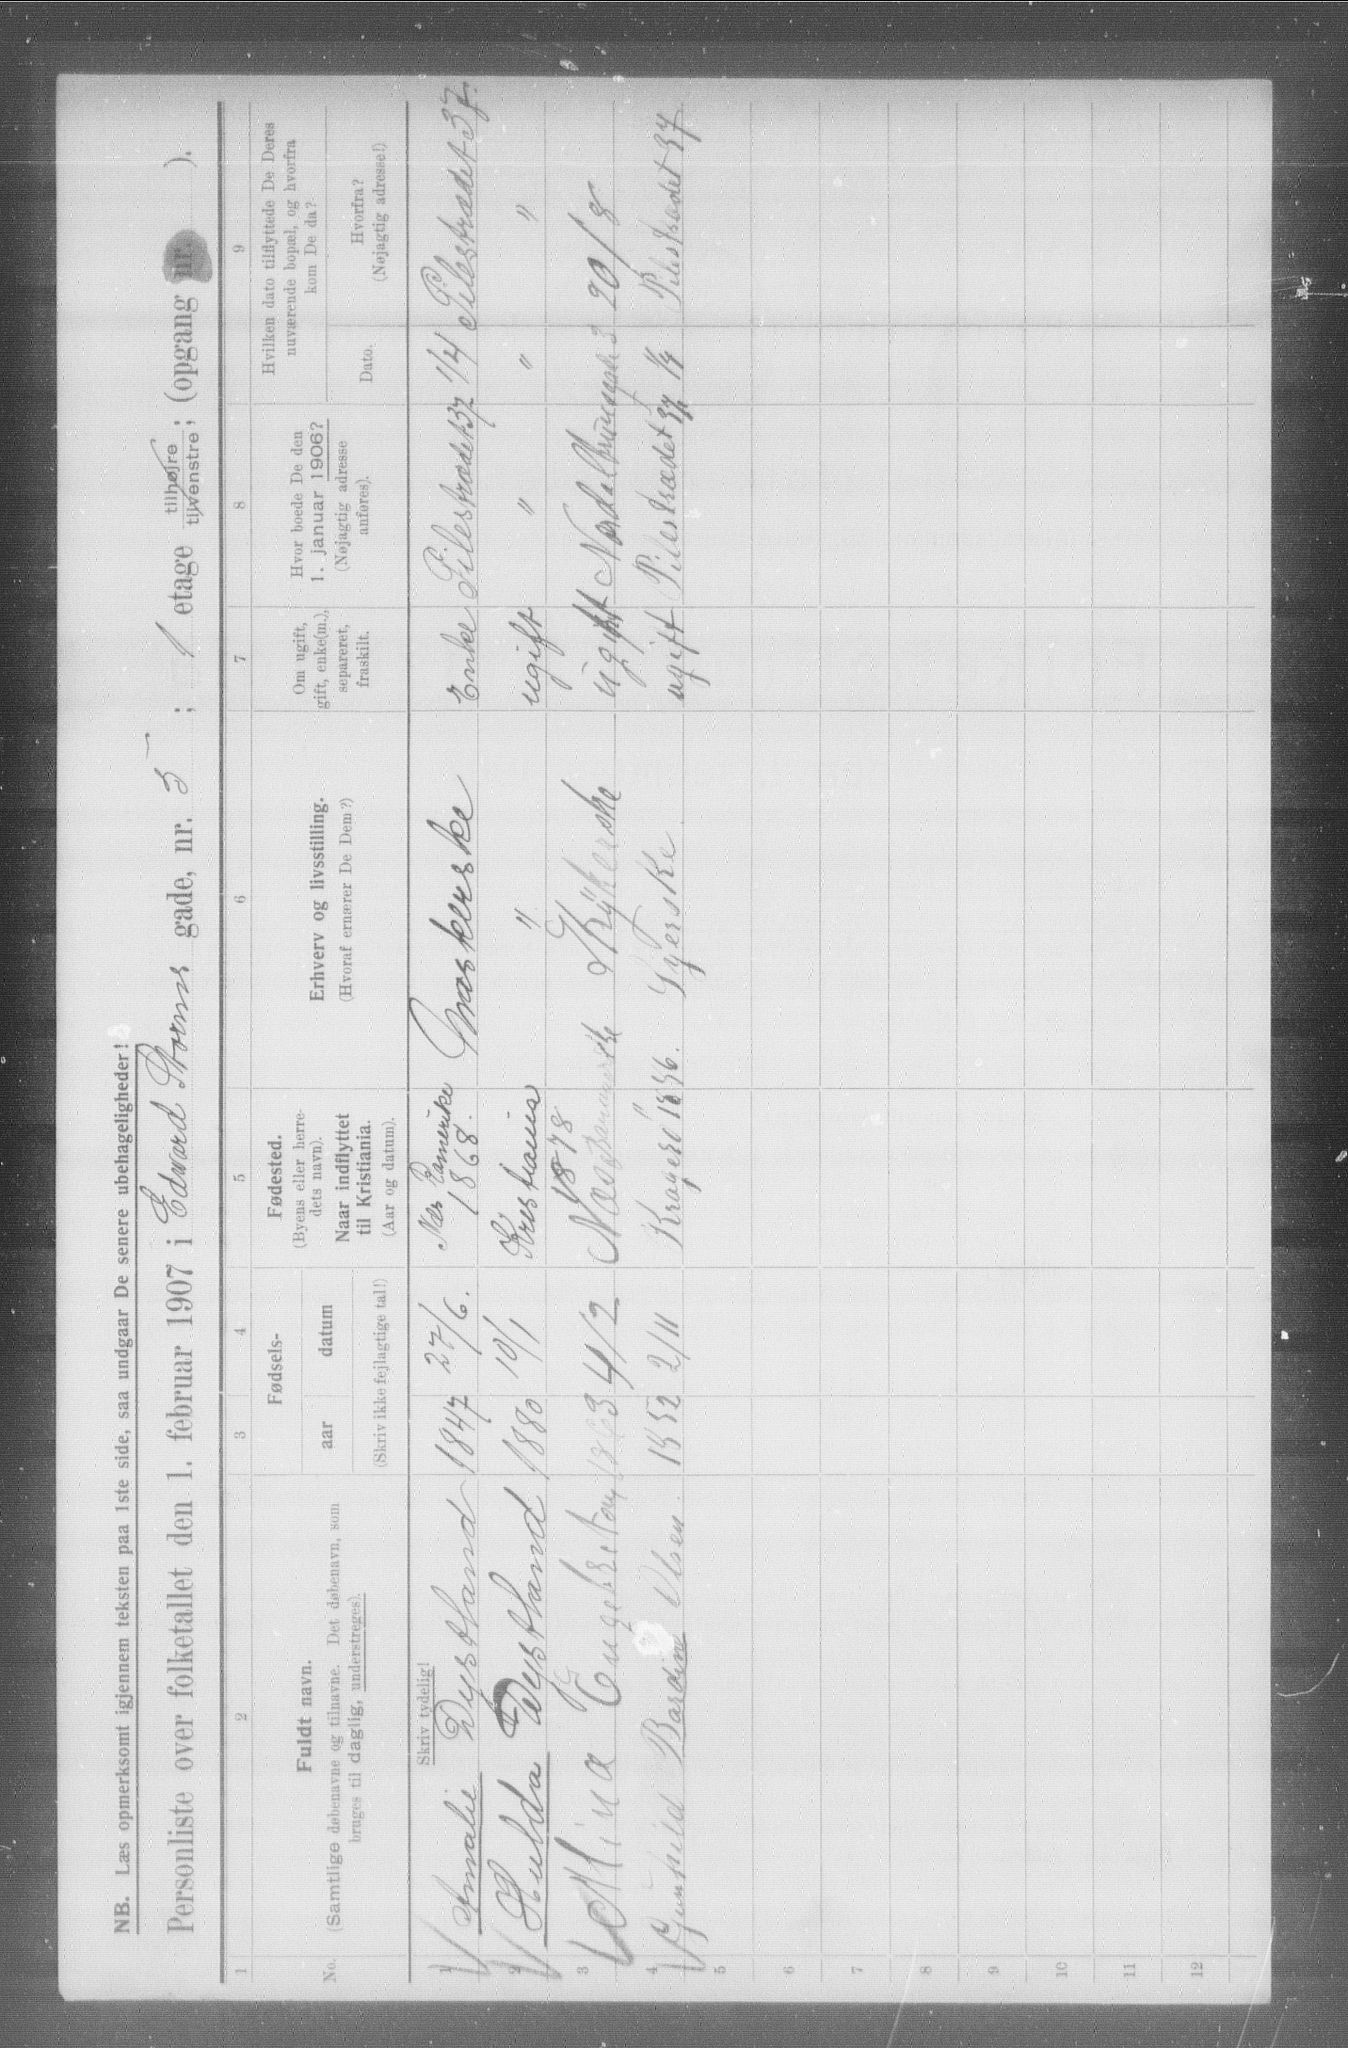 NB. Læs opmerksomt igjennem teksten paa 1ste side, saa undgaar De senere ubehageligheder!
Personliste over folketallet den 1. februar 1907 i Edvard Storms gade, nr. 5 ; 1 etage tilhøjre tilvenstre ; (opgang nr. ).
1 2 3 4 5 6 7 8 9
No.
Fuldt navn.
(Samtlige døbenavne og tilnavne. Det døbenavn, som
bruges til daglig, understreges).
Fødsels-
aar datum
(Skriv ikke fejlagtige tal!)
Fødested.
(Byens eller herre-
dets navn).
Naar indflyttet
til Kristiania.
(Aar og datum).
Erhverv og livsstilling.
(Hvoraf ernærer De Dem?)
Om ugift,
gift, enke(m.),
separeret,
fraskilt.
Hvor boede De den
1. januar 1906?
(Nøjagtig adresse
anføres).
Hvilken dato tilflyttede De Deres
nuværende bopæl, og hvorfra
kom De da?
Dato.
Hvorfra?
(Nøjagtig adresse!)
Skriv tydelig!
1 Amalie Dysthand 1847 27/6. Nes Romerike 1868. Enke Pilestrædet 37 1/4 Pilestrædet 37.
2 Hulda Dysthand 1880 10/1 Kristiania 1878 " ugift " " "
3 Mina 4/2 ugift 20/8
4 Gunhild Bardine Olsen. 1852 2/11 Kragerø Syerske. ugift Pilestrædet 37 1/4 Pilestrædet 37
5
6
7
8
9
10
11
12